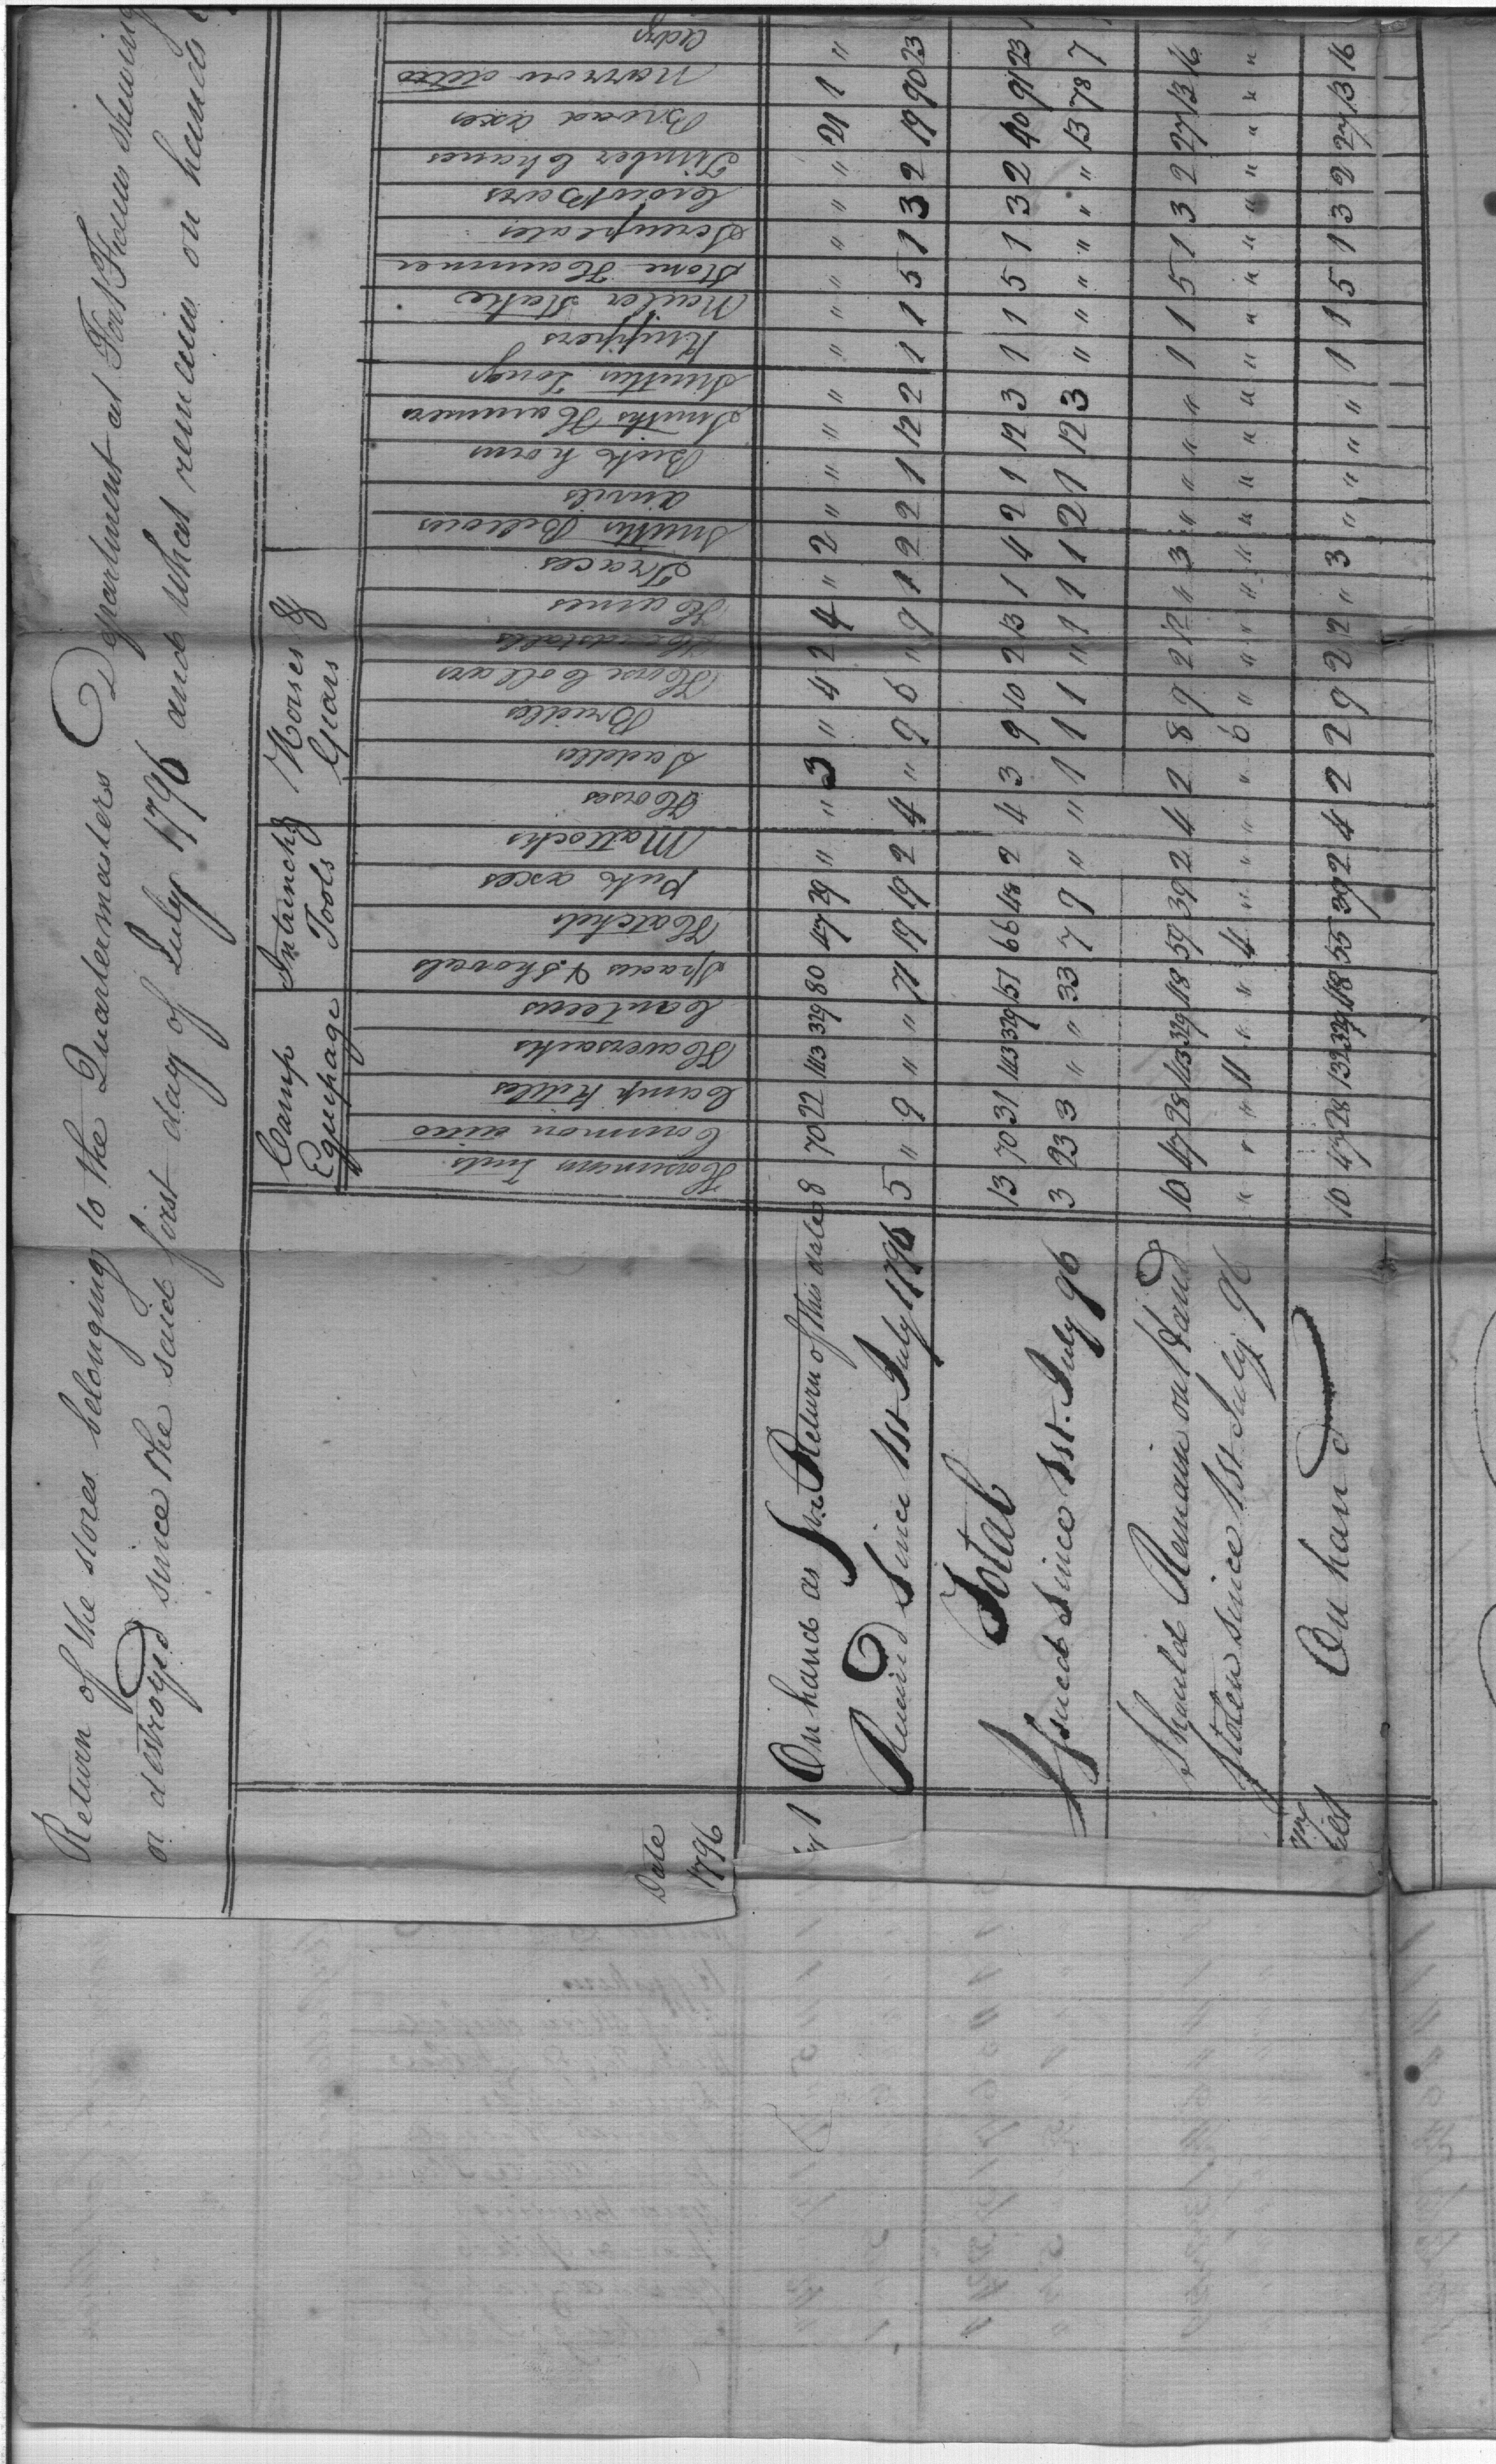 Return of the stores belonging to the Quartermasters Department at Fort Fiacus shewing
or destroyed since the said first day of July 1796 and what remain on hand
Camp Equipage
Intrenchg Tools
Horses & Gears
Date 1796
Horsemens Tents
Common ditto
Camp Kettles
Haversacks
Canteens
Spades & Shovels
Hatchets
Pick axes
Mattocks
Horses
Saddles
Bridles
Horse Collars
Headstalls
Hames
Traces
Smiths Bellows
Anvils
Bick horns
Smiths Hammers
Smiths Tongs
Knippers
Nailor Stake
Stone Hammer
Screwplates
Crow Bars
Timber Chains
Broad axes
Narrow ditto
Adzs
1 On hand as pr Return of this date 8 70 22 113 329 80 47 29 " " 3 " 4 2 4 " 2 " " " " " " " " " " 21 1 "
Received Since 1st July 1796 5 " 9 " " 71 19 19 2 4 " 9 6 " 9 1 2 2 1 12 2 1 1 5 1 3 2 19 90 23
Total 13 70 31 113 329 151 66 48 2 4 3 9 10 2 13 1 4 2 1 12 3 1 1 5 1 3 2 40 91 23
Issued Since 1st July 96 3 23 3 " " 33 7 9 " " 1 1 1 " 1 1 1 2 1 12 3 " " " " " 13 78 7
Should Remain on Hand 10 47 28 113 329 118 59 39 2 4 2 8 9 2 12 " 3 " " " " 1 1 5 1 3 2 27 13 16
Stolen since 1st July 96 " " " 11 " " 4 " " " " 6 " " " " " " " " " " " " " " " " " "
On hand 10 47 28 132 329 118 55 39 2 4 2 2 9 2 12 " 3 " " " " 1 1 5 1 3 2 27 13 16